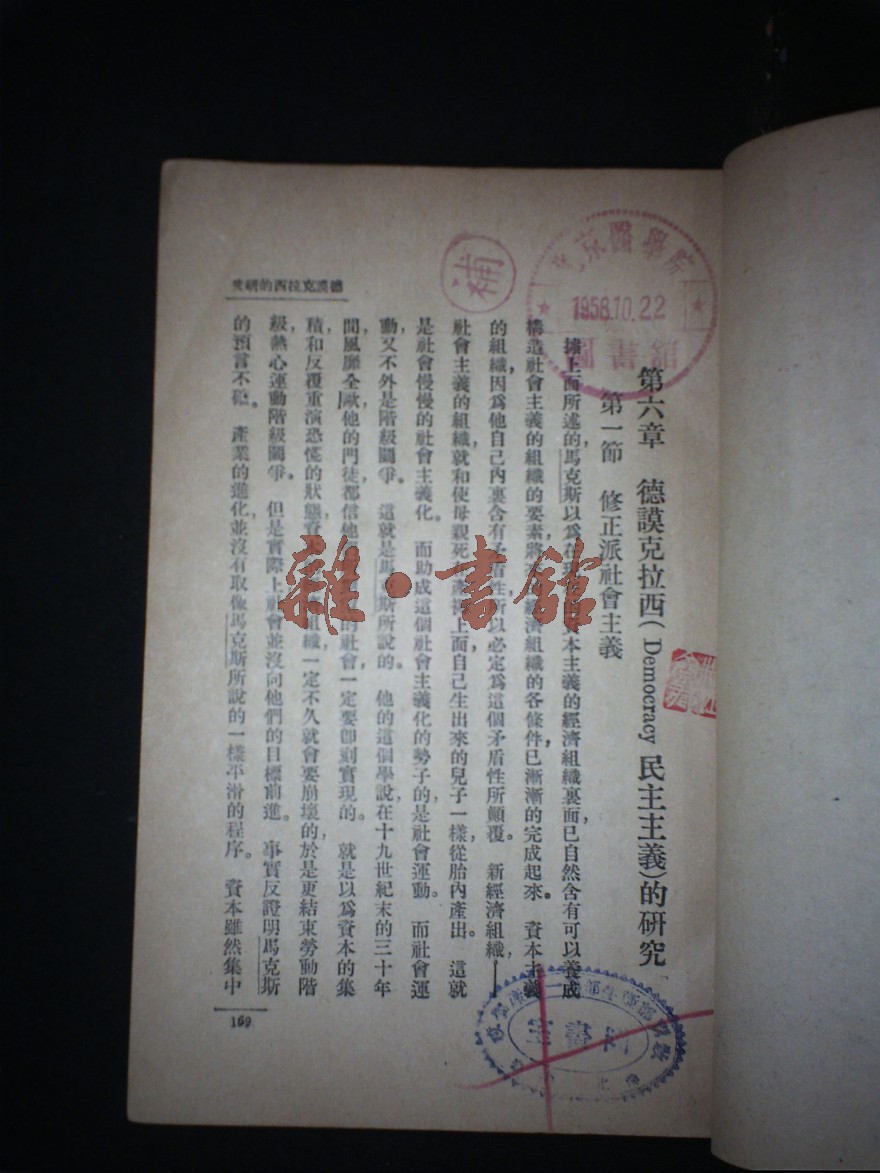 第六章　德謨克拉西(Democracy 民主主義)的研究
第一節　修正派社會主義
據上面所述的，馬克斯以爲在現 資本主義的經濟組織裏面，已自然含有可以養成
構造社會主義的組織的要素，將 的經濟組織的各條件已漸漸的完成起來。資本主義
的組織，因爲他自己內裏含有矛盾性， 以必定爲這個矛盾性所顚覆。新經濟組織——
社會主義的組織，就和使母親死 產 上面自己生出來的兒子一樣，從胎內產出。這就
是社會慢慢的社會主義化。而助成這個社會主義化的勢子的是社會運動。而社會運
動，又不外是階級鬭爭。這就是馬克斯所說的。他的這個學說在十九世紀末的三十年
間風靡全歐，他的門徒都信他 的社會，一定要卽刻實現的。就是以爲資本的集
積和反覆重演恐慌的狀態，資本 組織一定不久就會要崩壞的，於是更結束勞動階
級，熱心運動階級鬭爭。但是實際上社會並沒向他們的目標前進。事實反證明馬克斯
的預言不確。產業的進化並沒有取像馬克斯所說的一樣平滑的程序。資本雖然集中
德謨克拉西的研究
169
補
北京醫學院
1956.10.22
圖書館
雜·書館
圖書室